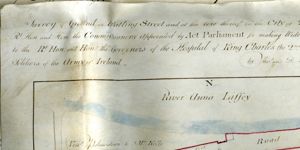 Survey of Ground in Watling Street and at the rear thereof in the City of
Rt. Hon and Hon the Commissioners Appointed by Act Parliament for making Wide
to the Rt. Hon and Hon the Governors of the Hospital of King Charles the 2nd
Soldiers of the Army of Ireland.
N
River Anna Liffey
Road